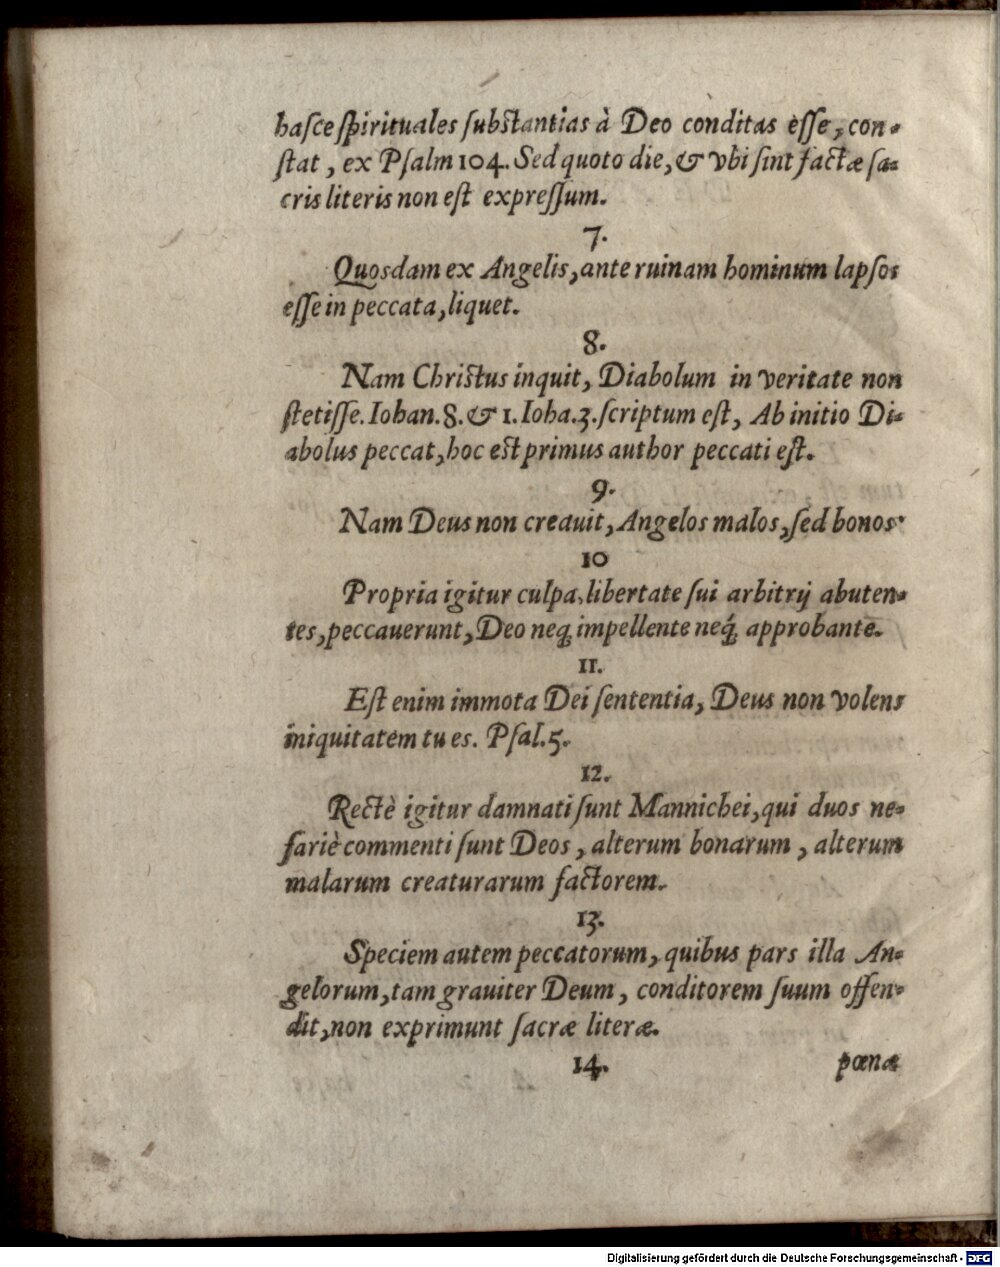 haſce ſpirituales ſubſtantias à Deo conditas eſſe, con-
ſtat, ex Pſalm 104. Sed quoto die, & vbi ſint factæ ſa-
cris literis non eſt expreſſum.
7.
Quosdam ex Angelis, ante ruinam hominum lapſos
eſſe in peccata, liquet.
8.
Nam Chriſtus inquit, Diabolum in veritate non
ſtetiſſe. Iohan. 8. & 1. Ioha. 3. ſcriptum eſt, Ab initio Di-
abolus peccat, hoc eſt primus author peccati eſt.
9.
Nam Deus non creauit, Angelos malos, ſed bonos.
10
Propria igitur culpa, libertate ſui arbitrij abuten-
tes, peccauerunt, Deo neq; impellente neq́; approbante.
11.
Eſt enim immota Dei ſententia, Deus non volens
iniquitatem tu es. Pſal. 5.
12.
Rectè igitur damnati ſunt Mannichei, qui duos ne-
fariè commenti ſunt Deos, alterum bonarum, alterum
malarum creaturarum factorem.
13.
Speciem autem peccatorum, quibus pars illa An-
gelorum, tam grauiter Deum, conditorem ſuum offen-
dit, non exprimunt ſacræ literæ.
14. pœnæ
Digitalisierung gefördert durch die Deutsche Forschungsgemeinschaft - DFG